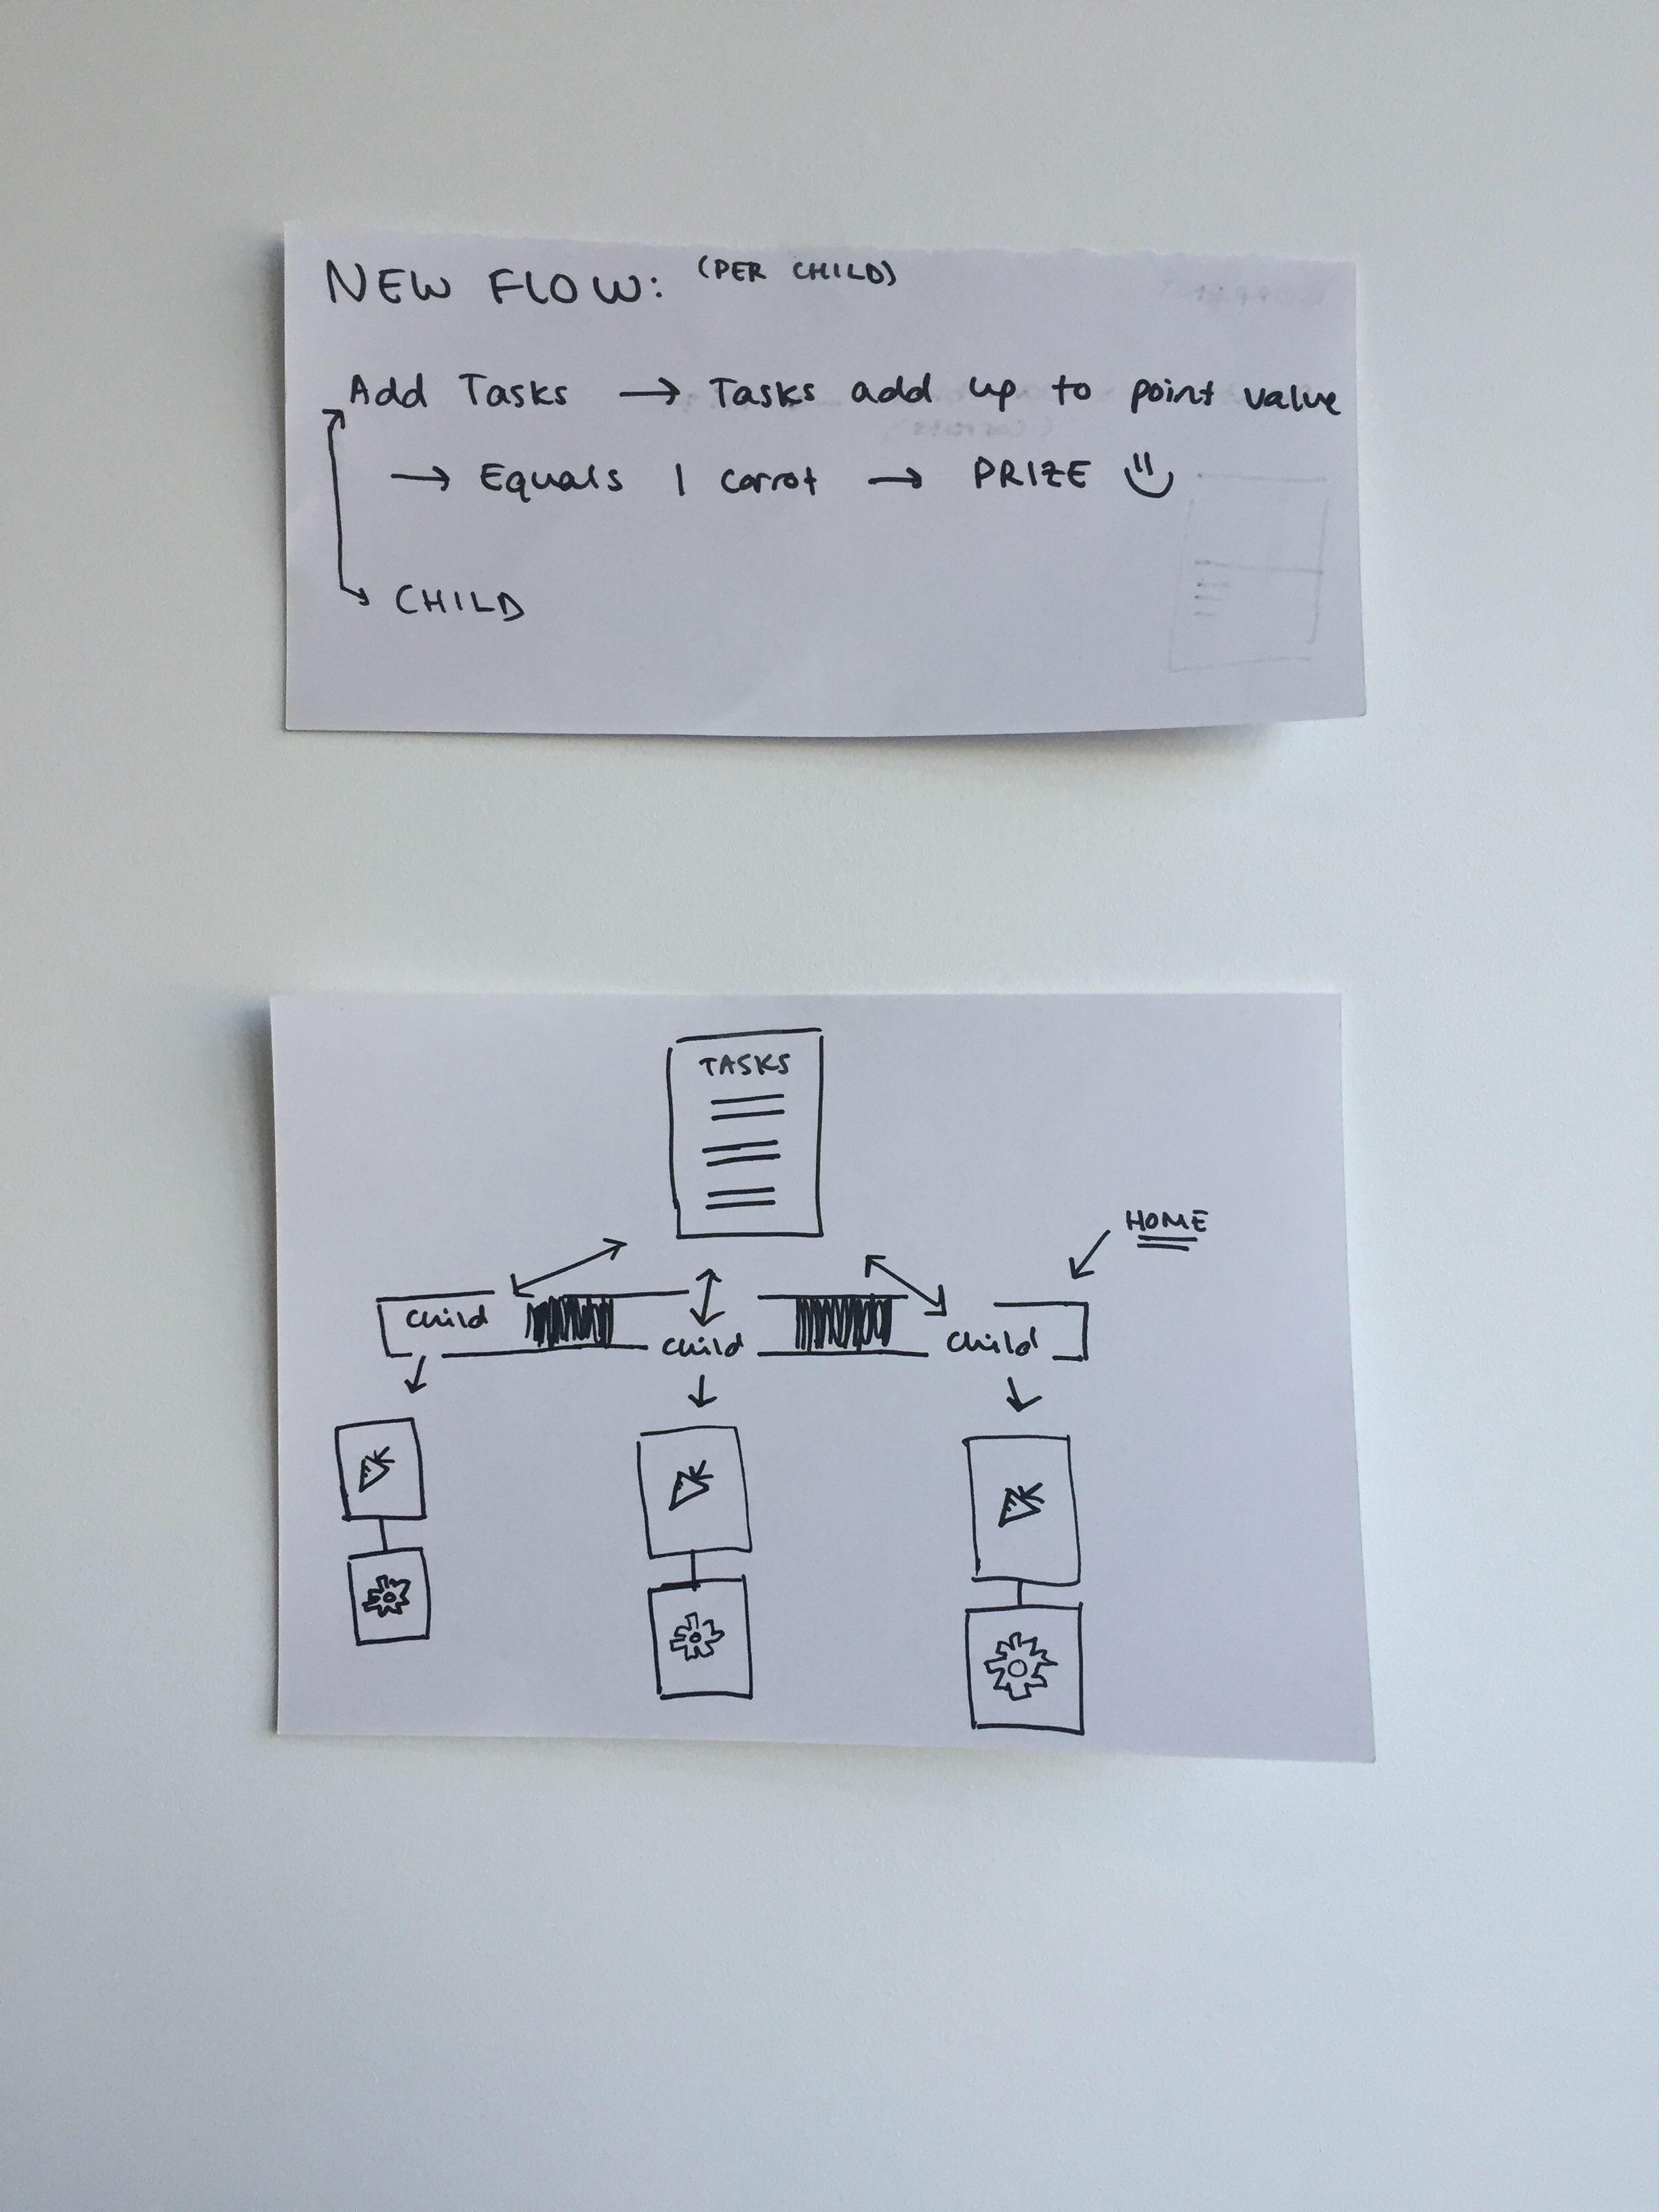 NEW FLOW: (PER CHILD)
Add Tasks → Tasks add up to point value
→ Equals 1 carrot → PRIZE
CHILD
TASKS
HOME
child
child
child